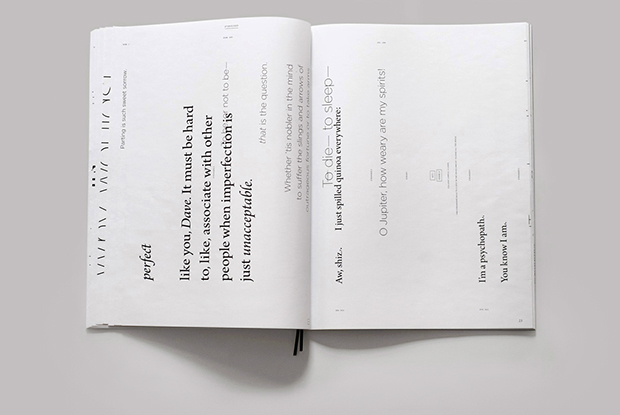 Parting is such sweet sorrow.
perfect
like you, Dave. It must be hard
to, like, associate with other
people when imperfection is
just unacceptable.
not to be—
that is the question.
Whether 'tis nobler in the mind
to suffer the slings and arrows of
To die— to sleep—
Aw, shiz.. I just spilled quinoa everywhere:
O Jupiter, how weary are my spirits!
I'm a psychopath.
You know I am.